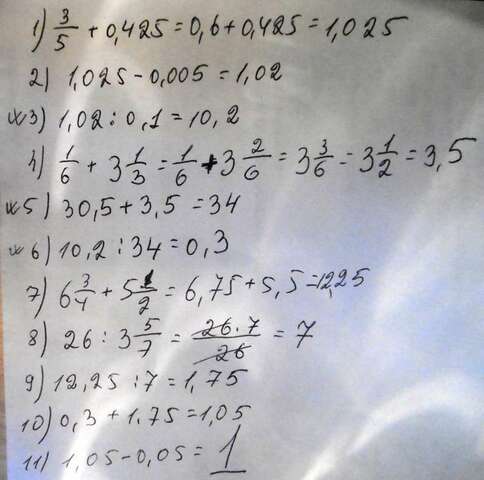 1) 3/5 + 0,425 = 0,6 + 0,425 = 1,025
2) 1,025 - 0,005 = 1,02
x3) 1,02 : 0,1 = 10,2
4) 1/6 + 3 1/3 = 1/6 + 3 2/6 = 3 3/6 = 3 1/2 = 3,5
x5) 30,5 + 3,5 = 34
x6) 10,2 : 34 = 0,3
7) 6 3/4 + 5 1/2 = 6,75 + 5,5 = 12,25
8) 26 : 3 5/7 = 26·7/26 = 7
9) 12,25 : 7 = 1,75
10) 0,3 + 1.75 = 1,05
11) 1,05 - 0,05 = 1